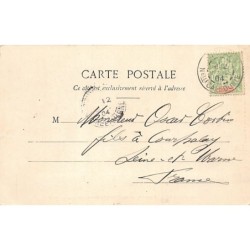 CARTE POSTALE
Ce côté est exclusivement réservé à l'adresse
M Monsieur Oscar
fils à Courpalay
Seine-et-Marne
France